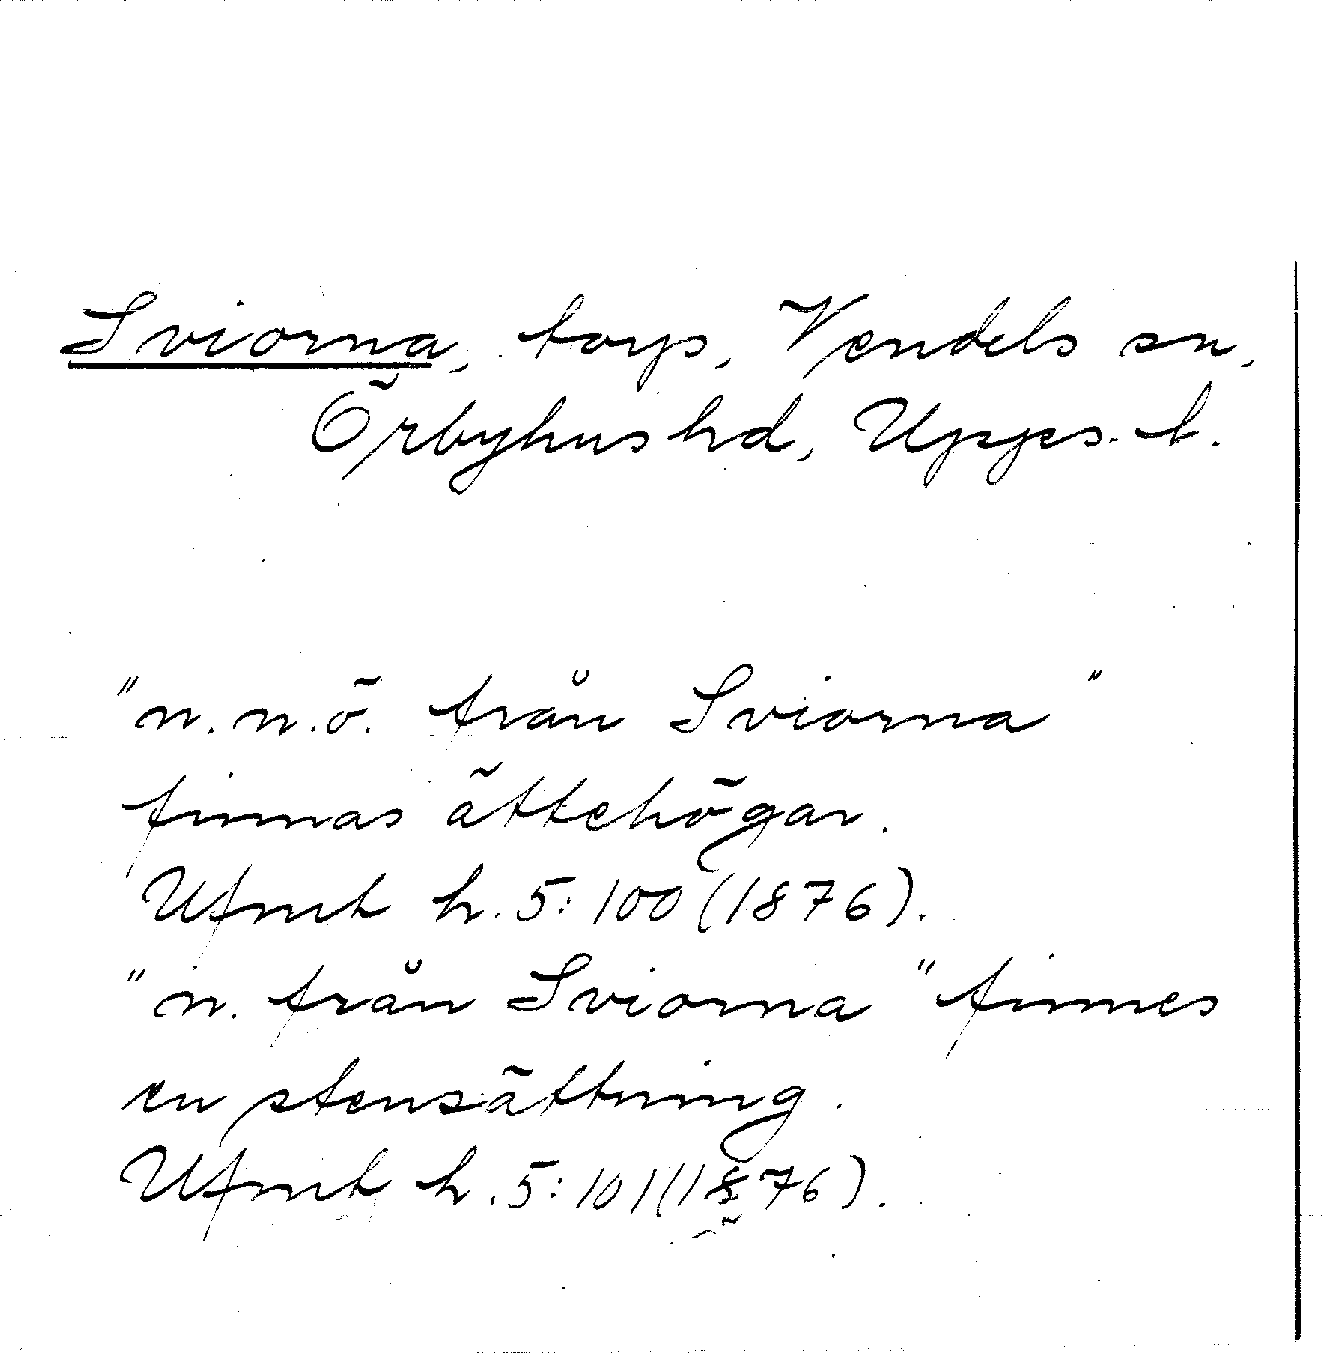 Sviorna, torp, Vendels sn,
Örbyhus hd, Upps. l.
"n.n.ö. från Sviorna"
finnas ättehögar.
Ufmt h.5:100 (1876).
"n. från Sviorna" finnes
en stensättning.
Ufmt h.5:101 (1876).